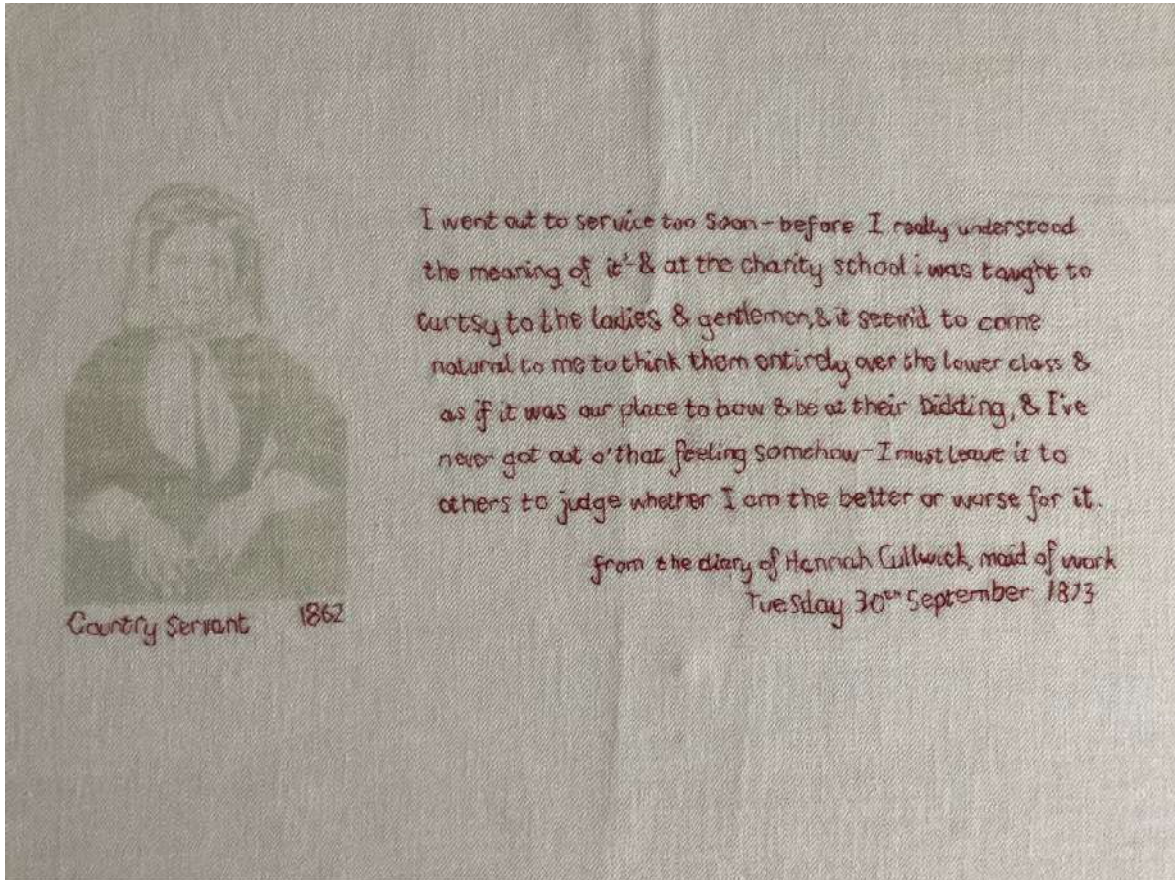 I went out to service too soon - before I really understood
the meaning of it - & at the charity school i was taught to
curtsy to the ladies & gentlemen, & it seem'd to come
natural to me to think them entirely over the lower class &
as if it was our place to bow & be at their bidding, & I've
never got out o' that feeling somehow - I must leave it to
others to judge whether I am the better or worse for it.
from the diary of Hannah Cullwick, maid of work
Tuesday 30th September 1873
Country Servant 1862